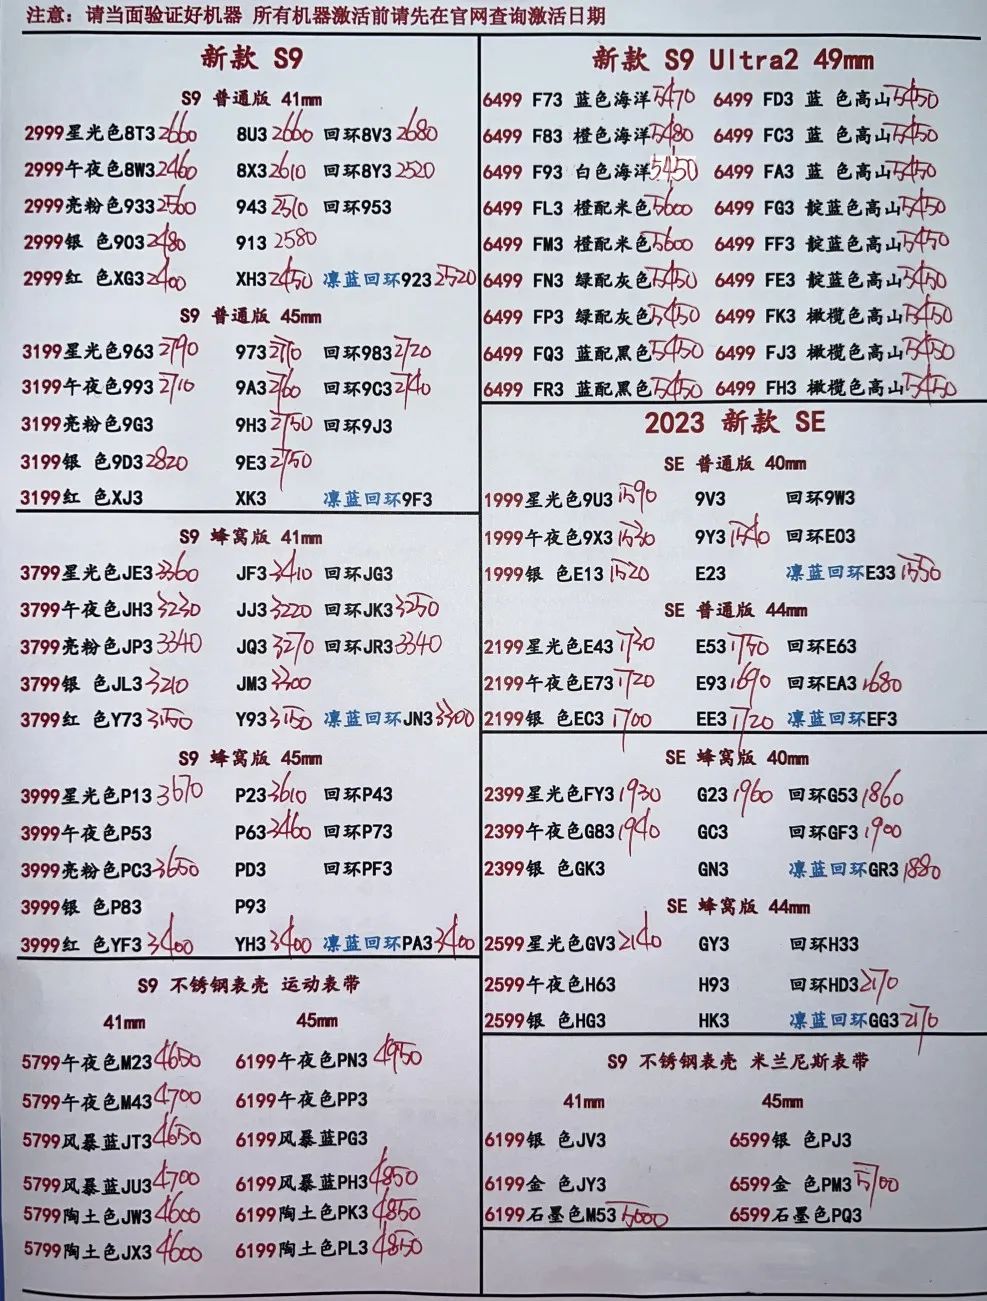 注意：请当面验证好机器 所有机器激活前请先在官网查询激活日期
新款 S9
S9 普通版 41mm
2999星光色8T3 2660 8U3 2660 回环8V3 2680
2999午夜色8W3 2460 8X3 2610 回环8Y3 2520
2999亮粉色933 2560 943 2510 回环953
2999银 色903 2480 913 2580
2999红 色XG3 2400 XH3 2450 凛蓝回环923 2520
S9 普通版 45mm
3199星光色963 2790 973 2710 回环983 2720
3199午夜色993 2710 9A3 2760 回环9C3 2740
3199亮粉色9G3 9H3 2750 回环9J3
3199银 色9D3 2820 9E3 2750
3199红 色XJ3 XK3 凛蓝回环9F3
S9 蜂窝版 41mm
3799星光色JE3 3360 JF3 3410 回环JG3
3799午夜色JH3 3230 JJ3 3220 回环JK3 3250
3799亮粉色JP3 3340 JQ3 3270 回环JR3 3340
3799银 色JL3 3210 JM3 3300
3799红 色Y73 3150 Y93 3150 凛蓝回环JN3 3300
S9 蜂窝版 45mm
3999星光色P13 3670 P23 3610 回环P43
3999午夜色P53 P63 3460 回环P73
3999亮粉色PC3 3650 PD3 回环PF3
3999银 色P83 P93
3999红 色YF3 3400 YH3 3400 凛蓝回环PA3 3400
S9 不锈钢表壳 运动表带
41mm 45mm
5799午夜色M23 4650 6199午夜色PN3 4950
5799午夜色M43 4700 6199午夜色PP3
5799风暴蓝JT3 4650 6199风暴蓝PG3
5799风暴蓝JU3 4700 6199风暴蓝PH3 4850
5799陶土色JW3 4600 6199陶土色PK3 4850
5799陶土色JX3 4600 6199陶土色PL3 4850
新款 S9 Ultra2 49mm
6499 F73 蓝色海洋 5470 6499 FD3 蓝 色高山 5450
6499 F83 橙色海洋 5480 6499 FC3 蓝 色高山 5450
6499 F93 白色海洋 5450 6499 FA3 蓝 色高山 5450
6499 FL3 橙配米色 5600 6499 FG3 靛蓝色高山 5450
6499 FM3 橙配米色 5600 6499 FF3 靛蓝色高山 5450
6499 FN3 绿配灰色 5450 6499 FE3 靛蓝色高山 5450
6499 FP3 绿配灰色 5450 6499 FK3 橄榄色高山 5450
6499 FQ3 蓝配黑色 5450 6499 FJ3 橄榄色高山 5450
6499 FR3 蓝配黑色 5450 6499 FH3 橄榄色高山 5450
2023 新款 SE
SE 普通版 40mm
1999星光色9U3 1590 9V3 回环9W3
1999午夜色9X3 1530 9Y3 1540 回环E03
1999银 色E13 1520 E23 凛蓝回环E33 1550
SE 普通版 44mm
2199星光色E43 1730 E53 1750 回环E63
2199午夜色E73 1720 E93 1690 回环EA3 1680
2199银 色EC3 1700 EE3 1720 凛蓝回环EF3
SE 蜂窝版 40mm
2399星光色FY3 1930 G23 1960 回环G53 1860
2399午夜色G83 1940 GC3 回环GF3 1900
2399银 色GK3 GN3 凛蓝回环GR3 1880
SE 蜂窝版 44mm
2599星光色GV3 2140 GY3 回环H33
2599午夜色H63 H93 回环HD3 2170
2599银 色HG3 HK3 凛蓝回环GG3 2170
S9 不锈钢表壳 米兰尼斯表带
41mm 45mm
6199银 色JV3 6599银 色PJ3
6199金 色JY3 6599金 色PM3 5700
6199石墨色M53 5000 6599石墨色PQ3